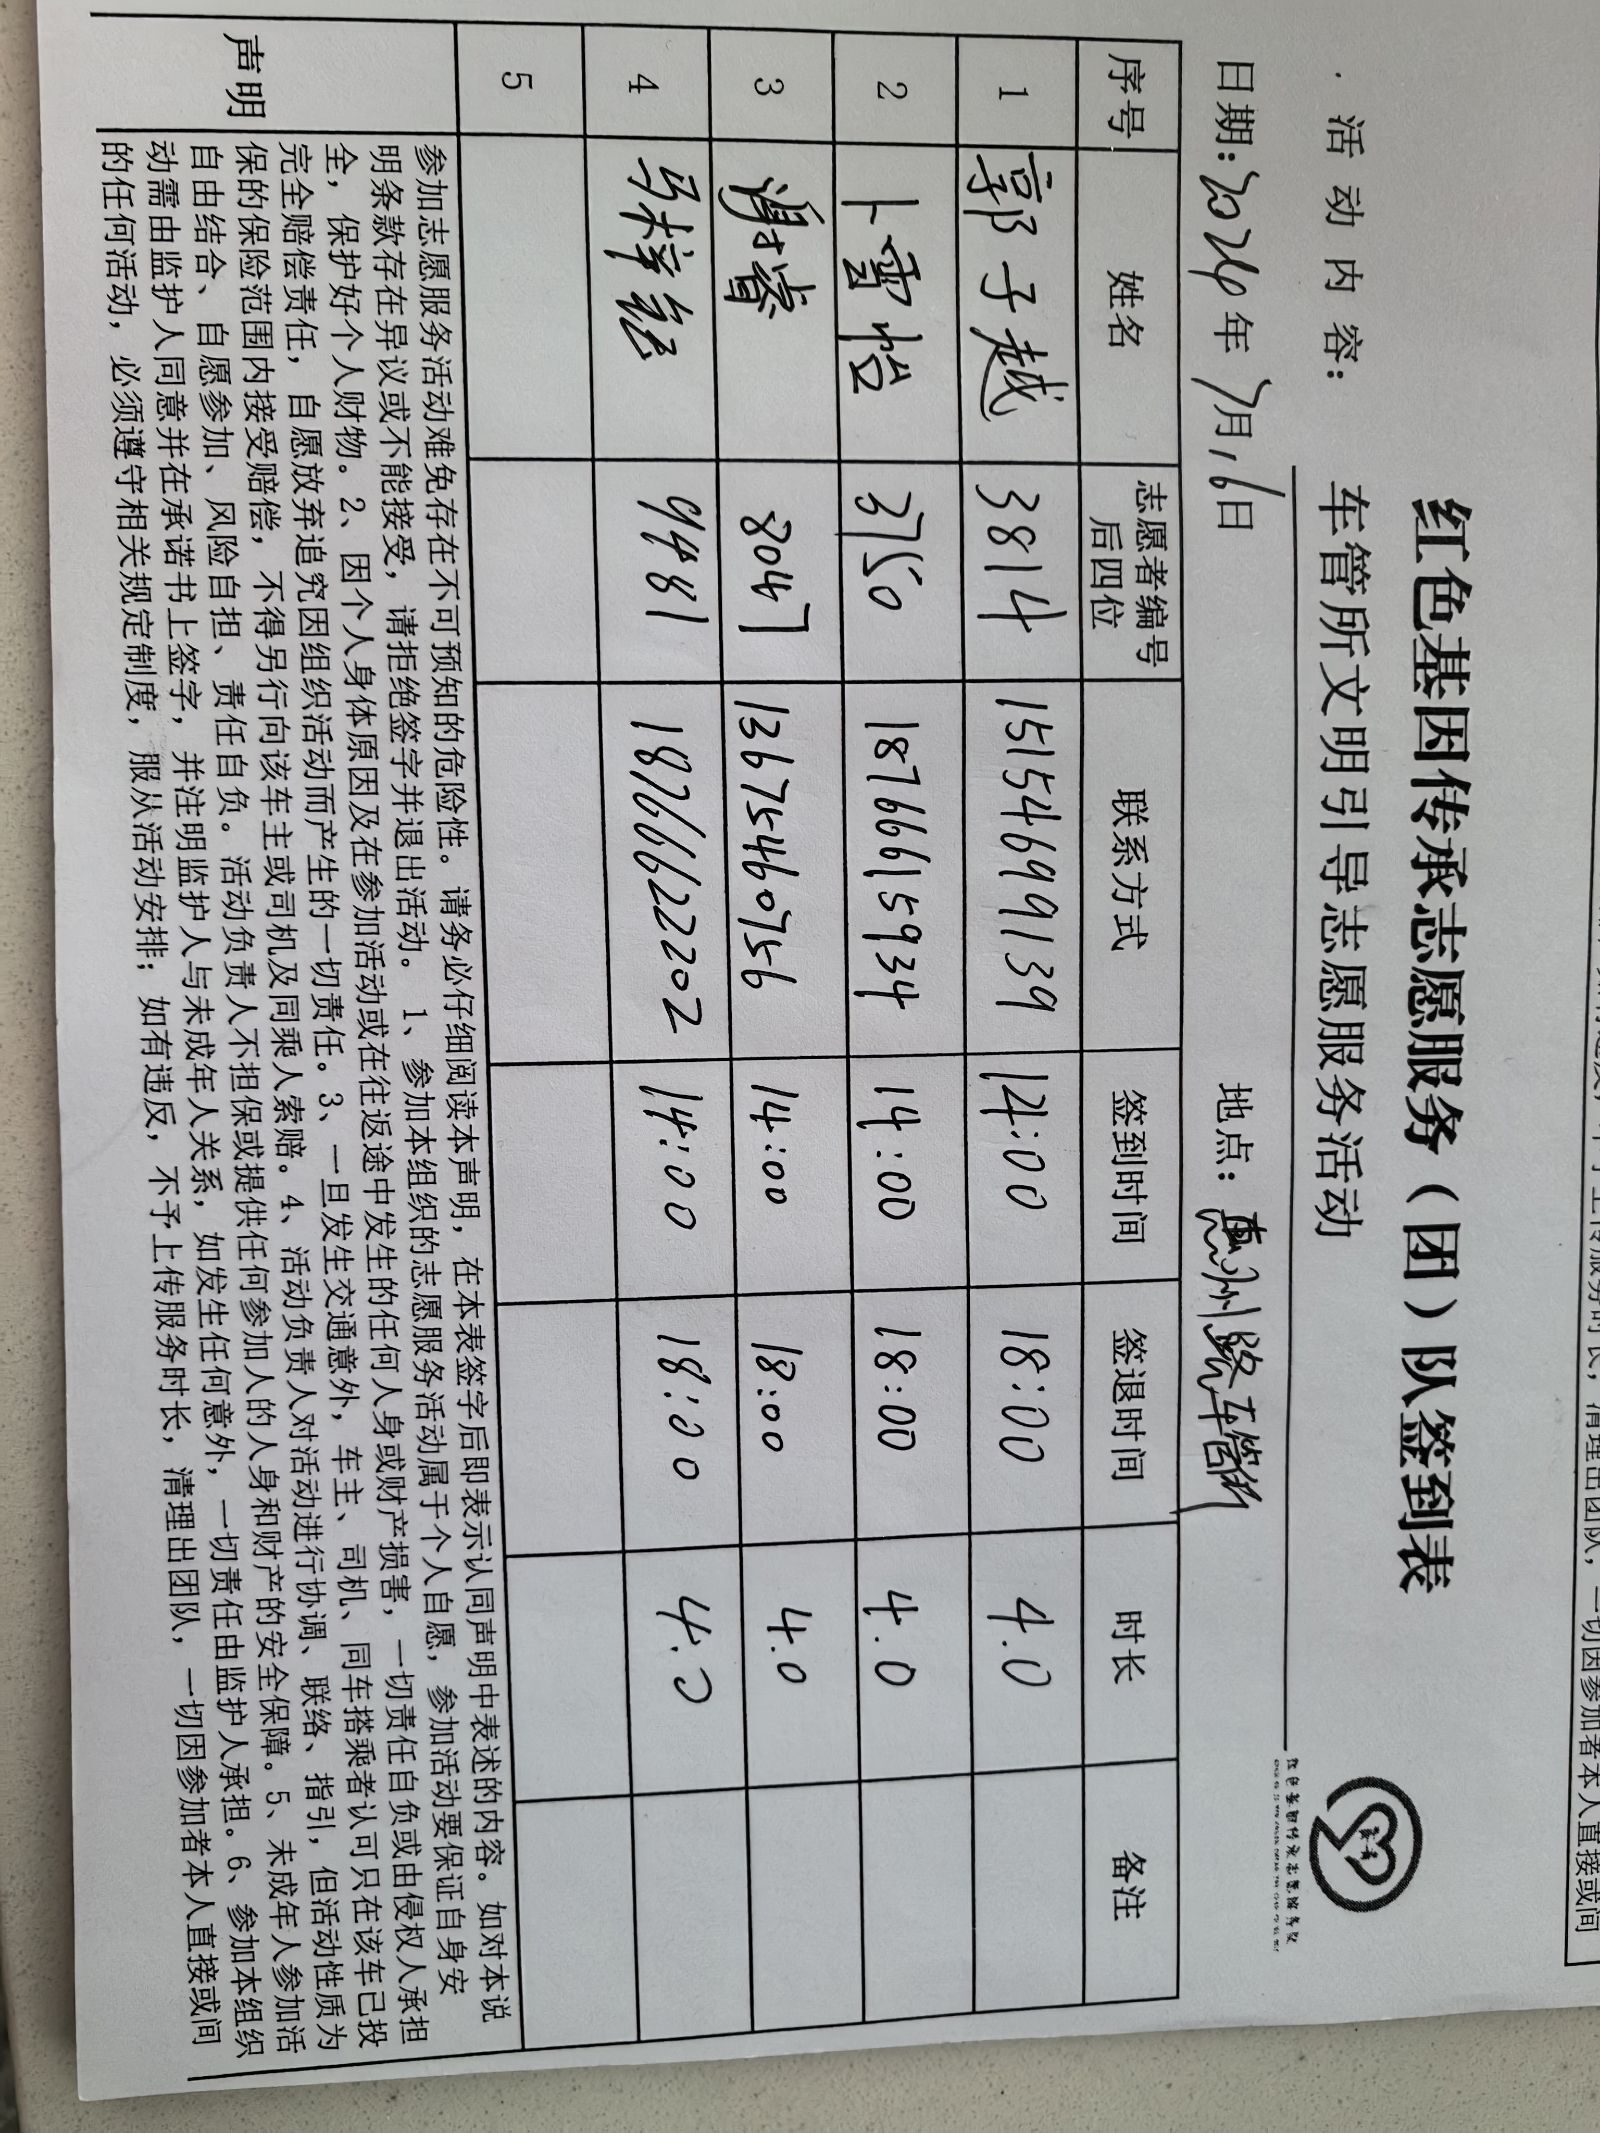 红色基因传承志愿服务（团）队签到表
活动内容： 车管所文明引导志愿服务活动
日期：2024年7月16日 地点：惠州路车管所
序号 姓名 志愿者编号后四位 联系方式 签到时间 签退时间 时长 备注
1 郭子越 3814 15154699139 14:00 18:00 4.0
2 卜雪怡 3750 18766615934 14:00 18:00 4.0
3 谢睿 8047 13675460756 14:00 18:00 4.0
4 马梓铭 9481 18766622202 14:00 18:00 4.0
5
声明
参加志愿服务活动难免存在不可预知的危险性。请务必仔细阅读本声明，在本表签字后即表示认同声明中表述的内容。如对本说
明条款存在异议或不能接受，请拒绝签字并退出活动。 1、参加本组织的志愿服务活动属于个人自愿，参加活动要保证自身安
全，保护好个人财物。2、因个人身体原因及在参加活动或在往返途中发生的任何人身或财产损害，一切责任自负或由侵权人承担
完全赔偿责任，自愿放弃追究因组织活动而产生的一切责任。3、一旦发生交通意外，车主、司机、同车搭乘者认可只在该车已投
保的保险范围内接受赔偿，不得另行向该车主或司机及同乘人索赔。4、活动负责人对活动进行协调、联络、指引，但活动性质为
自由结合、自愿参加、风险自担、责任自负。活动负责人不担保或提供任何参加人的人身和财产的安全保障。5、未成年人参加活
动需由监护人同意并在承诺书上签字，并注明监护人与未成年人关系，如发生任何意外，一切责任由监护人承担。6、参加本组织
的任何活动，必须遵守相关规定制度，服从活动安排；如有违反，不予上传服务时长，清理出团队，一切因参加者本人直接或间